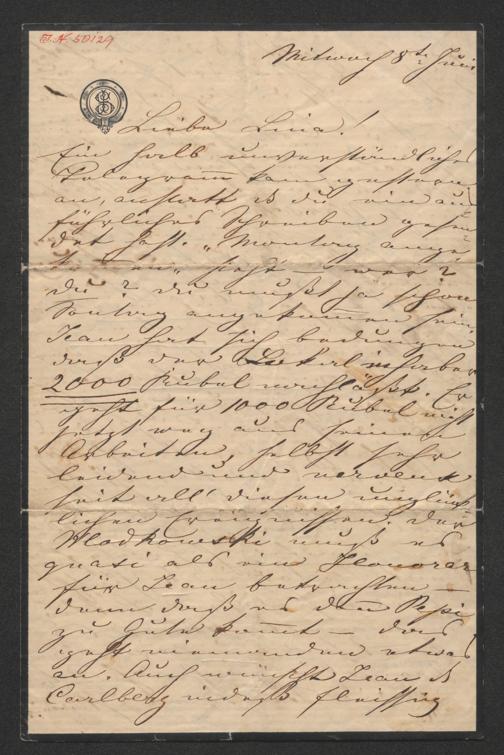 J.N. 50129
Mitwoch 8te Juni
Liebe Lina!
Ein halb unverständliches
Telegramm kam gestern
an, anstatt daß du ein aus=
führliches Schreiben gesen=
det hast. „Montag ange
kommen" steht – wer?
du? du mußt ja schon
Sontag angekommen sein
Jean hat sich bedungen
daß der inhaber
2000 Rubel nachläßt. Er
geht für 1000 Rubel nicht
jetzt weg aus seinen
Arbeiten, selbst sehr
leidend und nervös
seit all' diesen unglück
lichen Ereignissen. Der
Wladkowski muß es
quasi als ein Honorar
für Jean betrachten –
denn daß es den Pepi
zu Gute komt – das
geht niemanden etwas
an. Auch wünscht Jean daß
Carlberg indeß fleissig